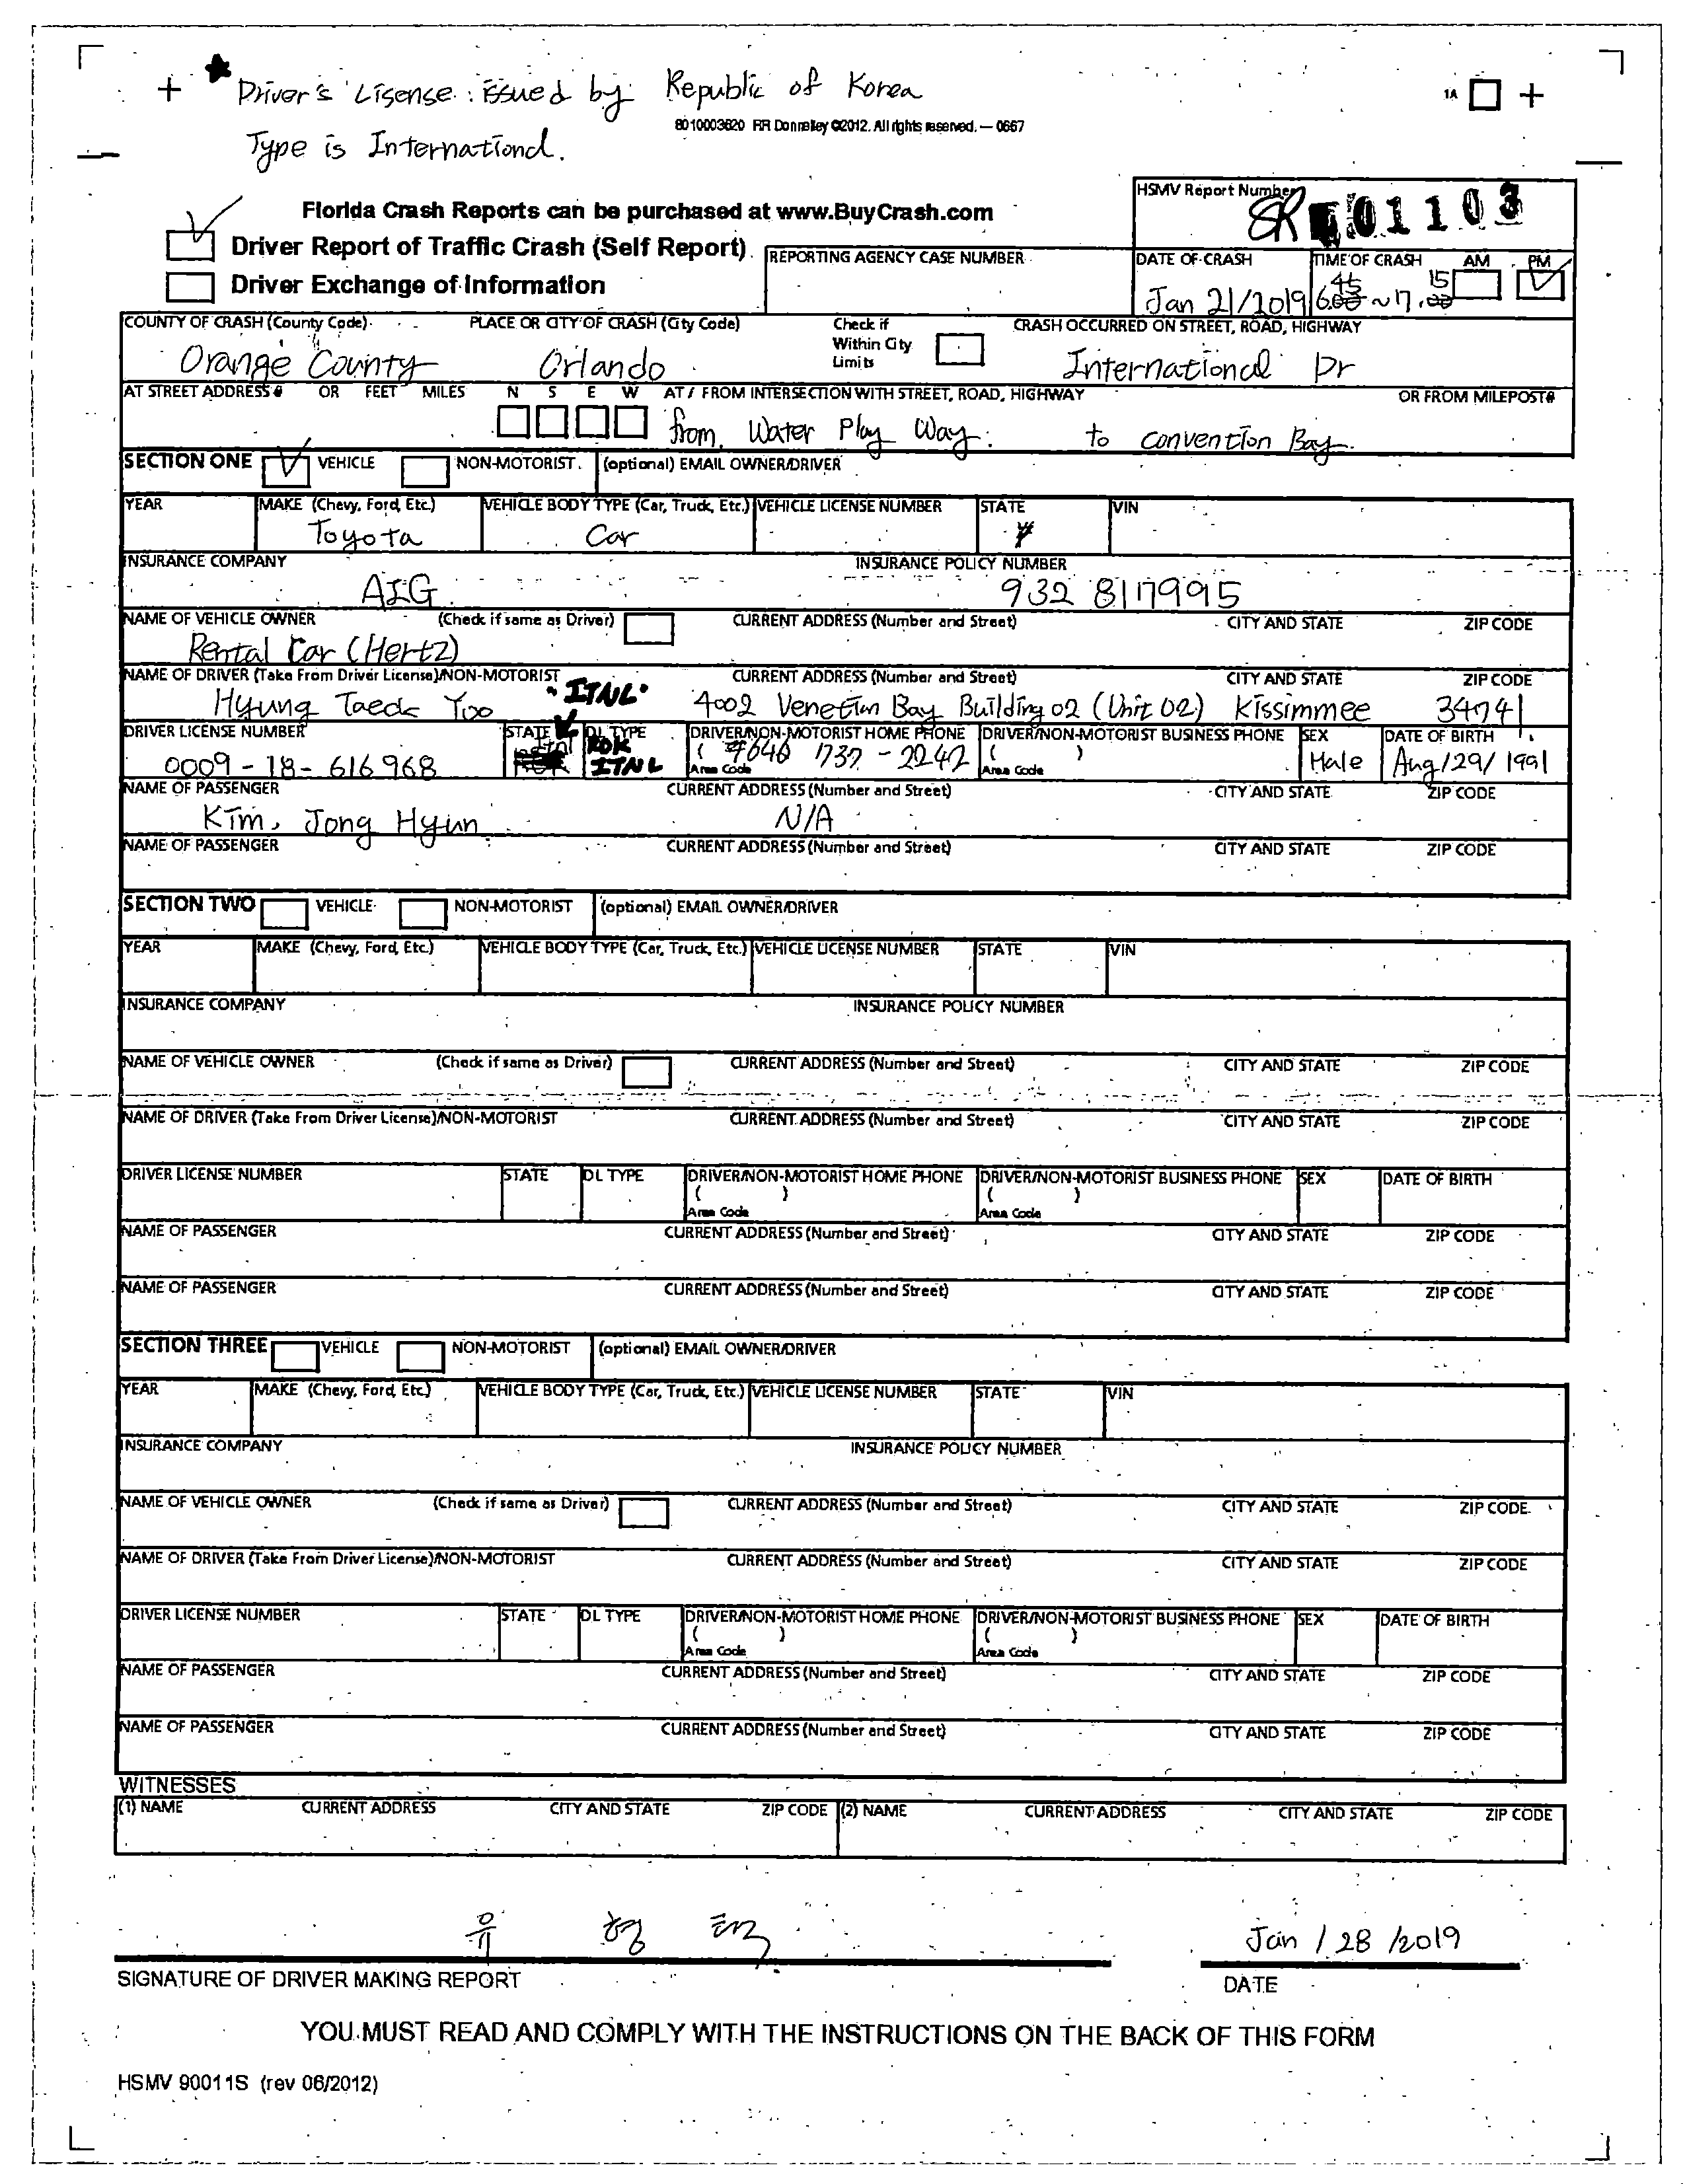 ★ Driver's Lisense : issued by Republic of Korea
1A
8010003620 RR Donnelley ©2012. All rights reserved. — 0667
Type is International.
HSMV Report Number
SR 01103
Florida Crash Reports can be purchased at www.BuyCrash.com
Driver Report of Traffic Crash (Self Report)
Driver Exchange of Information
REPORTING AGENCY CASE NUMBER
DATE OF CRASH TIME OF CRASH AM PM
45 15
Jan 21/2019 6:00 ~ 17:00
COUNTY OF CRASH (County Code) PLACE OR CITY OF CRASH (City Code) Check if Within City Limits CRASH OCCURRED ON STREET, ROAD, HIGHWAY
Orange County Orlando International Dr
AT STREET ADDRESS# OR FEET MILES N S E W AT / FROM INTERSECTION WITH STREET, ROAD, HIGHWAY OR FROM MILEPOST#
from Water Play Way. to Convention Bay.
SECTION ONE VEHICLE NON-MOTORIST (optional) EMAIL OWNER/DRIVER
YEAR MAKE (Chevy, Ford, Etc.) VEHICLE BODY TYPE (Car, Truck, Etc.) VEHICLE LICENSE NUMBER STATE VIN
Toyota Car
INSURANCE COMPANY INSURANCE POLICY NUMBER
AIG 932 8117995
NAME OF VEHICLE OWNER (Check if same as Driver) CURRENT ADDRESS (Number and Street) CITY AND STATE ZIP CODE
Rental Car (Hertz)
NAME OF DRIVER (Take From Driver License)/NON-MOTORIST CURRENT ADDRESS (Number and Street) CITY AND STATE ZIP CODE
Hyung Taeck Yoo "ITNL" 4002 Venetian Bay Building 02 (Unit 02) Kissimmee 34741
DRIVER LICENSE NUMBER STATE DL TYPE DRIVER/NON-MOTORIST HOME PHONE DRIVER/NON-MOTORIST BUSINESS PHONE SEX DATE OF BIRTH
0009-18-616968 ROK ITNL ( 646 1737-2242 ( ) Male Aug/29/1991
Area Code Area Code
NAME OF PASSENGER CURRENT ADDRESS (Number and Street) CITY AND STATE ZIP CODE
Kim, Jong Hyun N/A
NAME OF PASSENGER CURRENT ADDRESS (Number and Street) CITY AND STATE ZIP CODE
SECTION TWO VEHICLE NON-MOTORIST (optional) EMAIL OWNER/DRIVER
YEAR MAKE (Chevy, Ford, Etc.) VEHICLE BODY TYPE (Car, Truck, Etc.) VEHICLE LICENSE NUMBER STATE VIN
INSURANCE COMPANY INSURANCE POLICY NUMBER
NAME OF VEHICLE OWNER (Check if same as Driver) CURRENT ADDRESS (Number and Street) CITY AND STATE ZIP CODE
NAME OF DRIVER (Take From Driver License)/NON-MOTORIST CURRENT ADDRESS (Number and Street) CITY AND STATE ZIP CODE
DRIVER LICENSE NUMBER STATE DL TYPE DRIVER/NON-MOTORIST HOME PHONE DRIVER/NON-MOTORIST BUSINESS PHONE SEX DATE OF BIRTH
( ) ( )
Area Code Area Code
NAME OF PASSENGER CURRENT ADDRESS (Number and Street) CITY AND STATE ZIP CODE
NAME OF PASSENGER CURRENT ADDRESS (Number and Street) CITY AND STATE ZIP CODE
SECTION THREE VEHICLE NON-MOTORIST (optional) EMAIL OWNER/DRIVER
YEAR MAKE (Chevy, Ford, Etc.) VEHICLE BODY TYPE (Car, Truck, Etc.) VEHICLE LICENSE NUMBER STATE VIN
INSURANCE COMPANY INSURANCE POLICY NUMBER
NAME OF VEHICLE OWNER (Check if same as Driver) CURRENT ADDRESS (Number and Street) CITY AND STATE ZIP CODE
NAME OF DRIVER (Take From Driver License)/NON-MOTORIST CURRENT ADDRESS (Number and Street) CITY AND STATE ZIP CODE
DRIVER LICENSE NUMBER STATE DL TYPE DRIVER/NON-MOTORIST HOME PHONE DRIVER/NON-MOTORIST BUSINESS PHONE SEX DATE OF BIRTH
( ) ( )
Area Code Area Code
NAME OF PASSENGER CURRENT ADDRESS (Number and Street) CITY AND STATE ZIP CODE
NAME OF PASSENGER CURRENT ADDRESS (Number and Street) CITY AND STATE ZIP CODE
WITNESSES
(1) NAME CURRENT ADDRESS CITY AND STATE ZIP CODE (2) NAME CURRENT ADDRESS CITY AND STATE ZIP CODE
유 형 택 Jan / 28 /2019
SIGNATURE OF DRIVER MAKING REPORT DATE
YOU MUST READ AND COMPLY WITH THE INSTRUCTIONS ON THE BACK OF THIS FORM
HSMV 90011S (rev 06/2012)